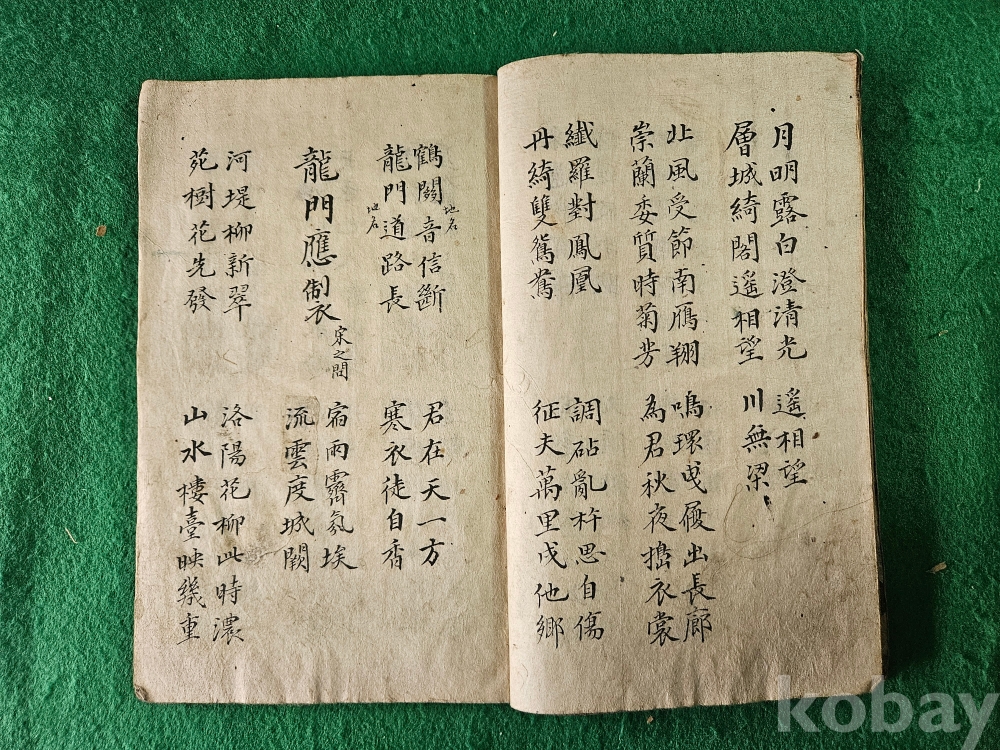 月明露白澄清光
層城綺閣遙相望
遙相望
川無梁
北風受節南鴈翔
崇蘭委質時菊芳
鳴環曳履出長廊
為君秋夜搗衣裳
纖羅對鳳凰
丹綺雙鴛鴦
調砧亂杵思自傷
征夫萬里戍他鄉
鶴闕音信斷
地名
龍門道路長
地名
君在天一方
寒衣徒自香
龍門應製
宋之問
宿雨霽氛埃
流雲度城闕
河堤柳新翠
苑樹花先發
洛陽花柳此時濃
山水樓臺映幾重
kobay